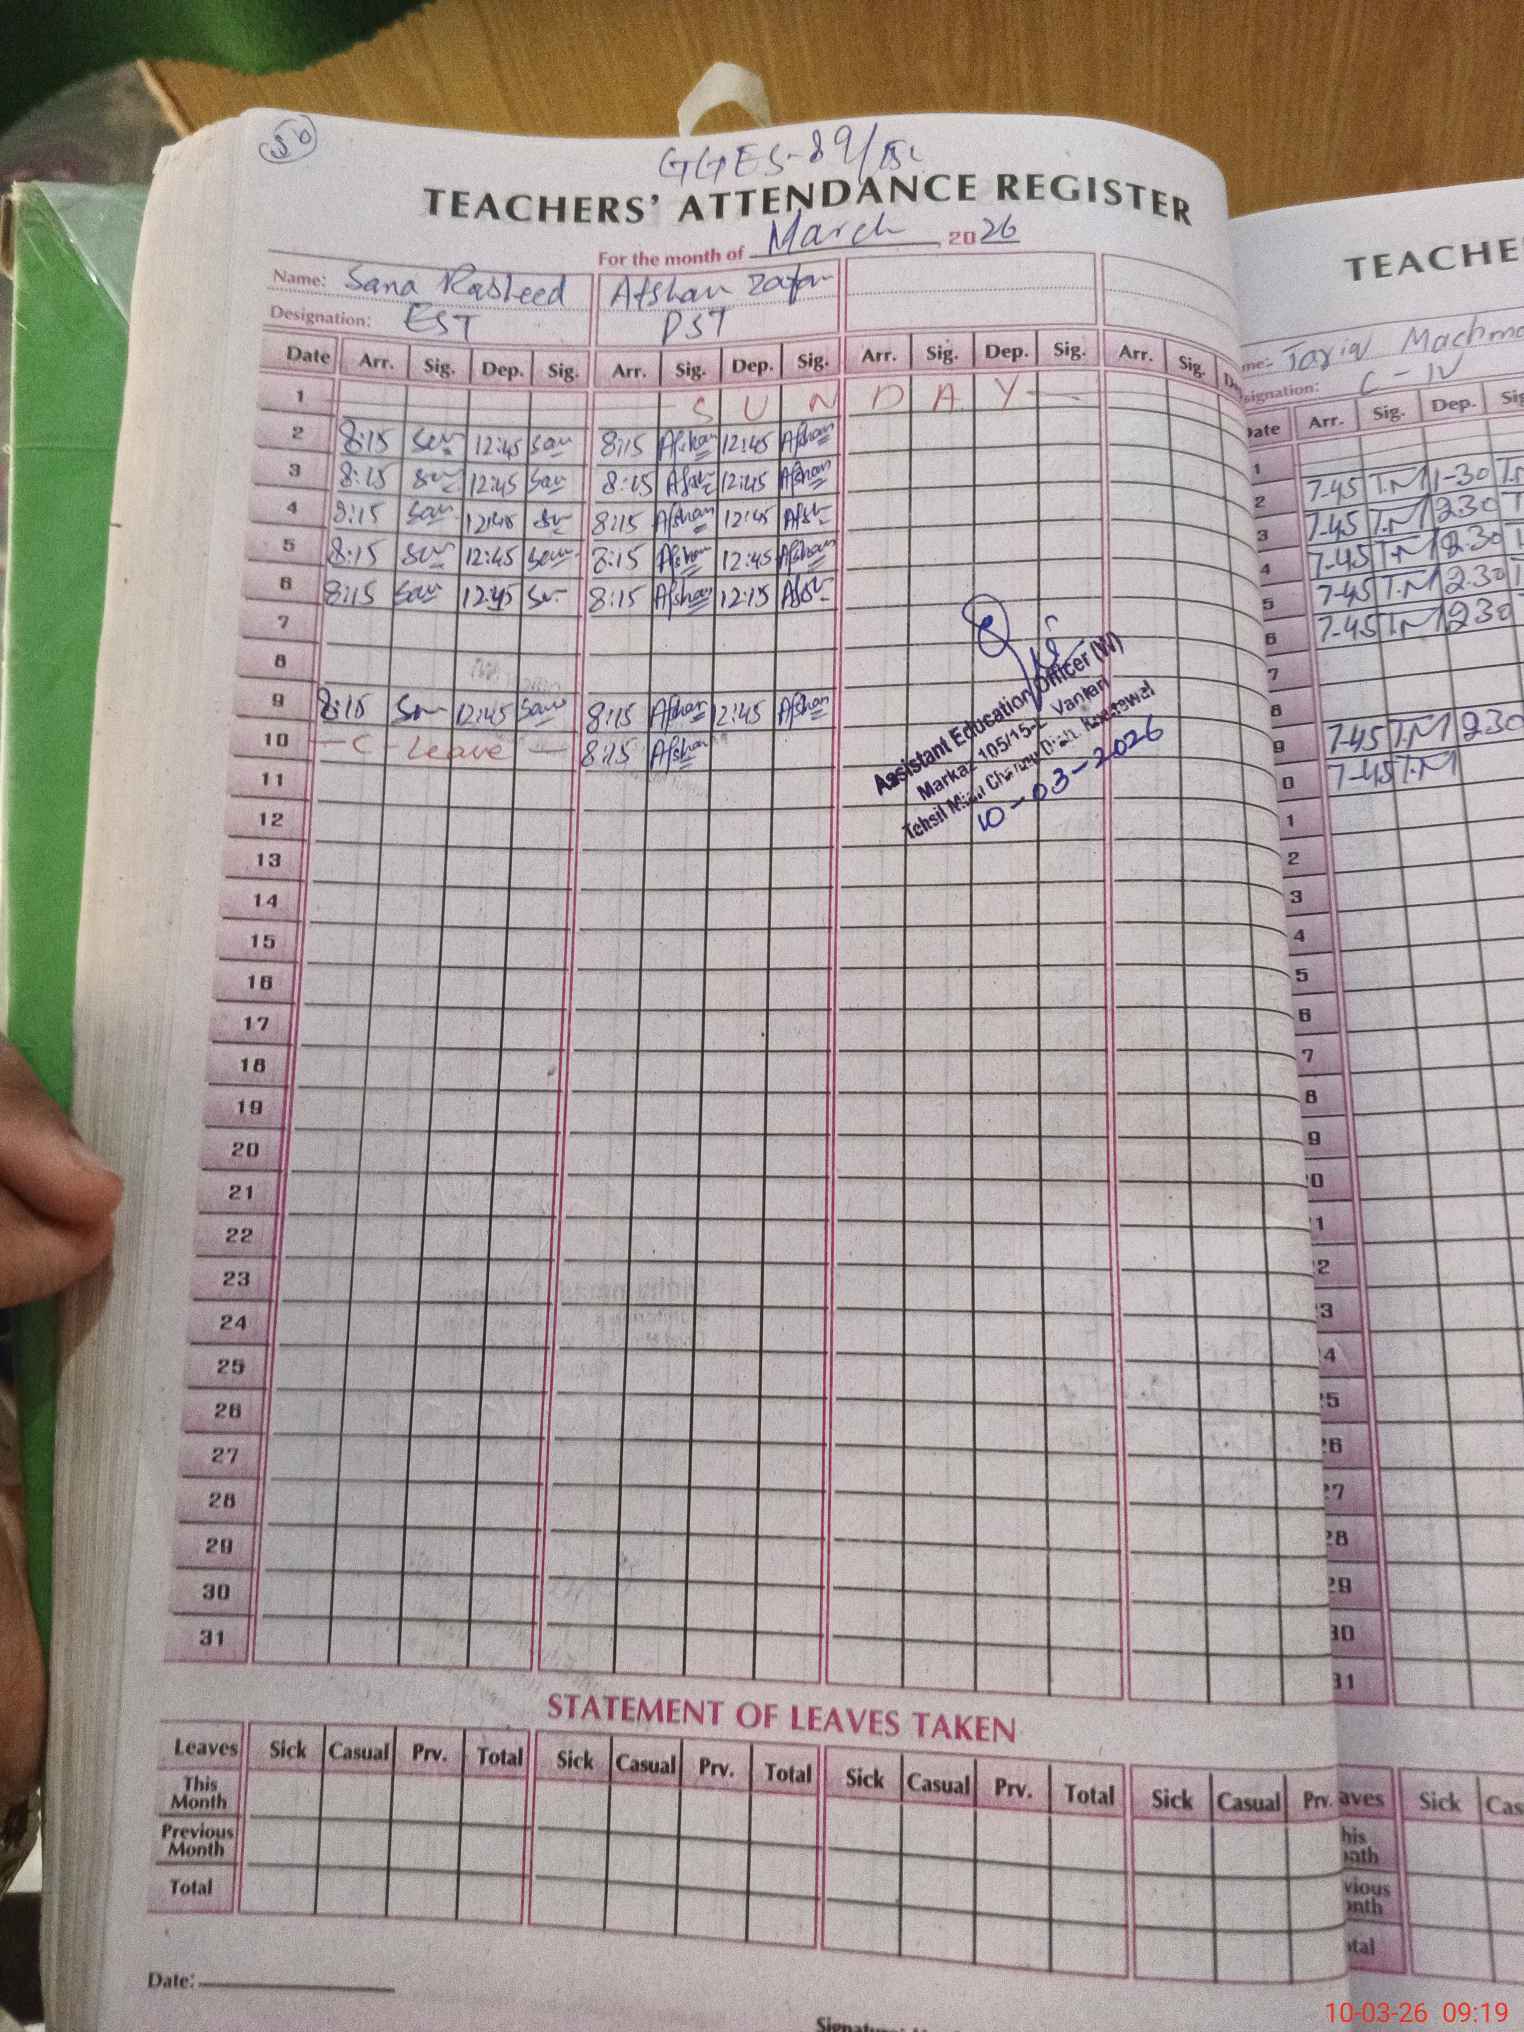 50
GGES-89/15L
TEACHERS' ATTENDANCE REGISTER
For the month of March 2026
Name: Sana Rasheed Afshan Zafar
Designation: EST PST
Date Arr. Sig. Dep. Sig. Arr. Sig. Dep. Sig. Arr. Sig. Dep. Sig. Arr. Sig.
1 SUNDAY
2 8:15 San 12:45 San 8:15 Afshan 12:45 Afshan
3 8:15 San 12:45 San 8:15 Afshan 12:45 Afshan
4 8:15 San 12:45 8:15 Afshan 12:45
5 8:15 San 12:45 San 8:15 Afshan 12:45 Afshan
6 8:15 San 12:45 8:15 Afshan 12:15
7
8
9 8:15 12:45 San 8:15 Afshan 12:45 Afshan
10 - C - Leave - 8:15 Afshan
11
12
13
14
15
16
17
18
19
20
21
22
23
24
25
26
27
28
29
30
31
Assistant Education Officer (W)
Markaz 105/15-L
Tehsil Mian Channu Distt. Khanewal
10-03-2026
STATEMENT OF LEAVES TAKEN
Leaves Sick Casual Prv. Total Sick Casual Prv. Total Sick Casual Prv. Total Sick Casual Prv.
This Month
Previous Month
Total
Date:
TEACHE
me:- Tariq Machmo
signation: C-IV
Date Arr. Sig. Dep. Sig
1
2 7-45 T.M 1-30
3 7-45 T.M 2.30
4 7-45 T.M 2.30
5 7-45 T.M 2.30
6 7-45 T.M 2.30
7
8
9 7-45 T.M 2.30
0 7-45 T.M
1
2
3
4
5
6
7
8
9
0
1
2
3
4
5
6
7
28
29
30
31
aves Sick Cas
his
nth
vious
onth
otal
10-03-26 09:19